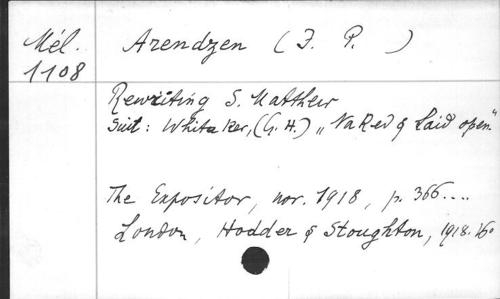 Mél. Arendzen (J. P. )
1108
Rewriting S. Matthew
Suit: Whitaker, (G. H.) „Naked & Laid open"
The Expositor, nov. 1918, p. 366....
London, Hodder & Stoughton, 1918. 16°